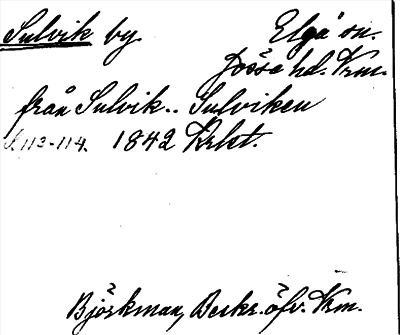 Sulvik by. Elgå sn.
Jösse hd. Vrm.
från Sulvik.. Sulviken
S. 113-114. 1842 Krlst.
Björkman, Beskr. öfv. Vrm.